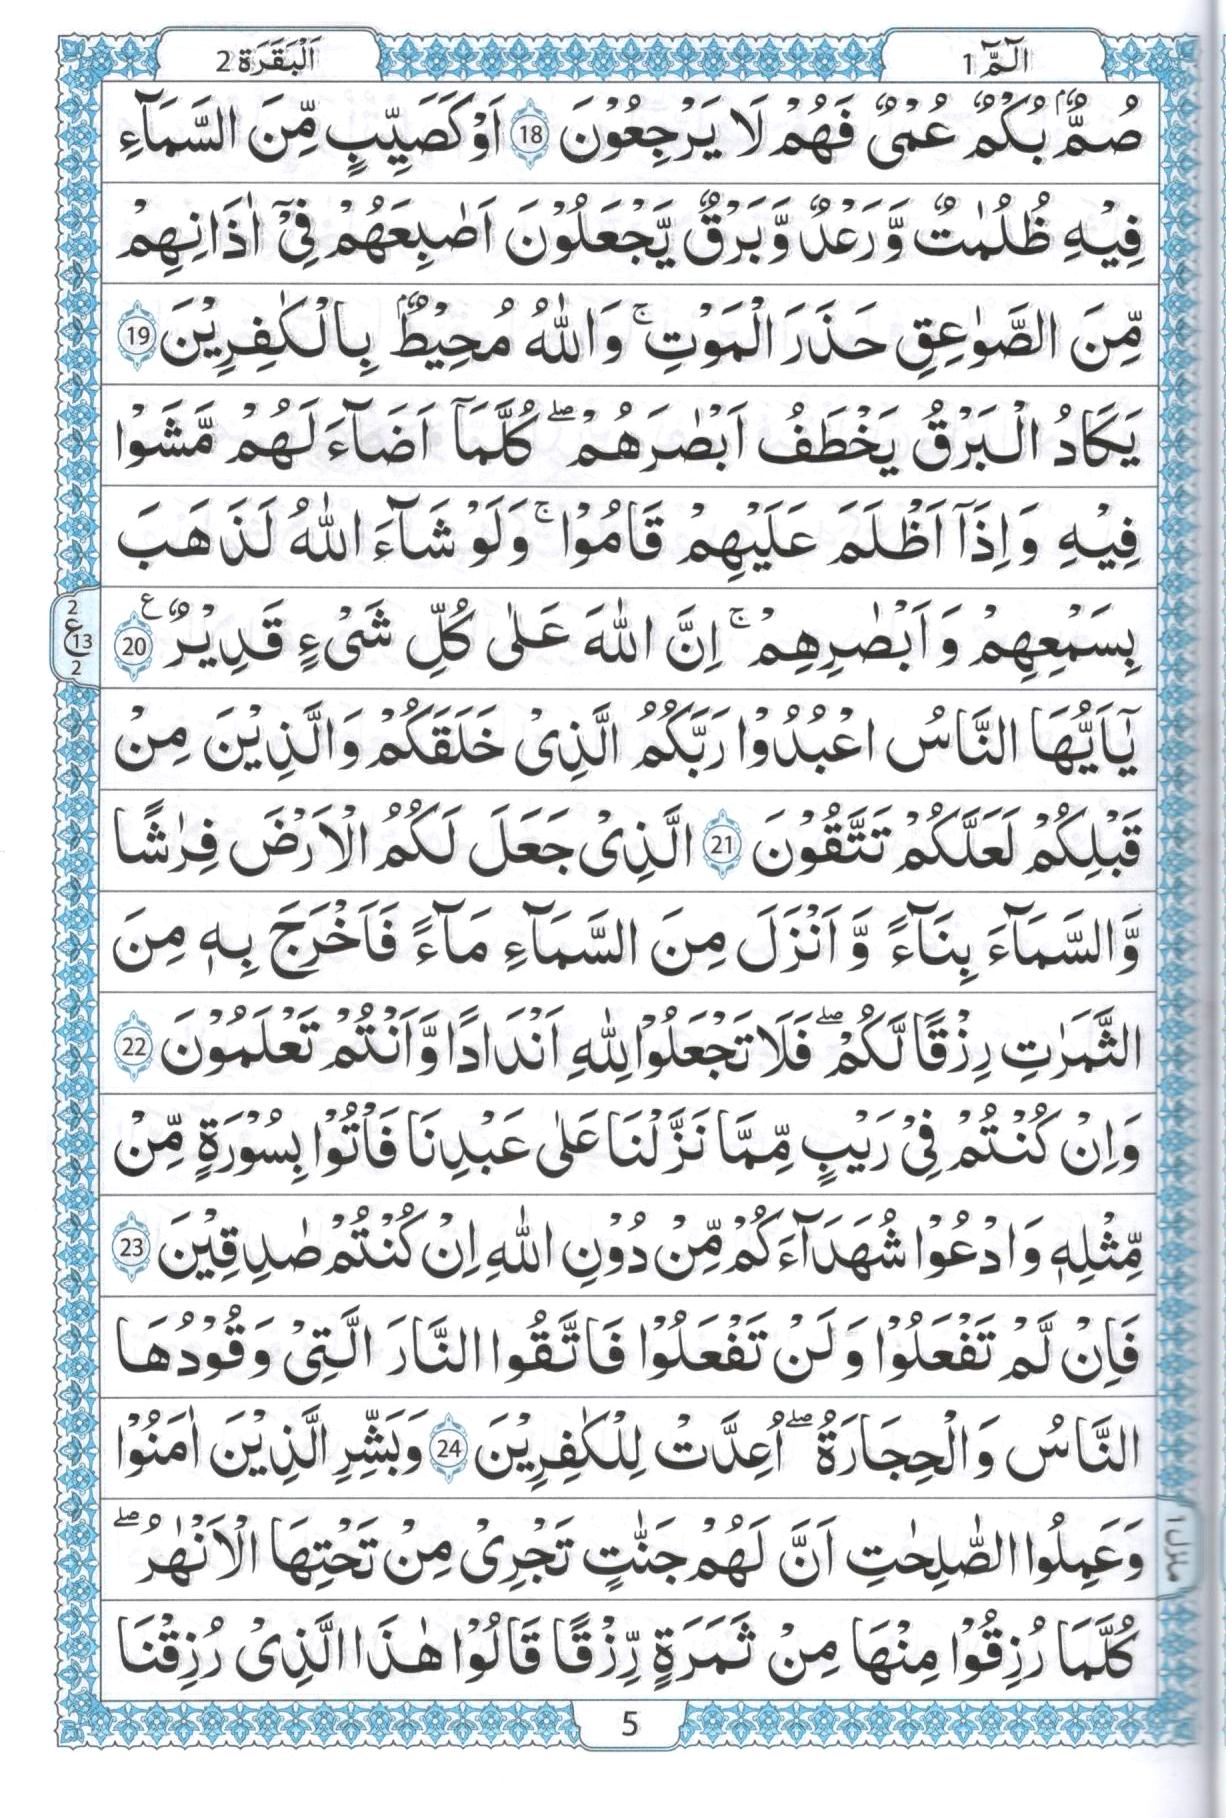 الٓمّٓ 1
اَلْبَقَرَة 2
صُمٌّۢ بُكْمٌ عُمْیٌ فَهُمْ لَا یَرْجِعُوْنَ 18 اَوْ كَصَیِّبٍ مِّنَ السَّمَآءِ
فِیْهِ ظُلُمٰتٌ وَّرَعْدٌ وَّبَرْقٌ یَّجْعَلُوْنَ اَصَابِعَهُمْ فِیْۤ اٰذَانِهِمْ
مِّنَ الصَّوٰعِقِ حَذَرَ الْمَوْتِ ۚ وَاللّٰهُ مُحِیْطٌۢ بِالْكٰفِرِیْنَ 19
یَكَادُ الْبَرْقُ یَخْطَفُ اَبْصٰرَهُمْ ۖ كُلَّمَآ اَضَآءَ لَهُمْ مَّشَوْا
فِیْهِ وَاِذَآ اَظْلَمَ عَلَیْهِمْ قَامُوْا ۚ وَلَوْ شَآءَ اللّٰهُ لَذَهَبَ
بِسَمْعِهِمْ وَاَبْصٰرِهِمْ ۚ اِنَّ اللّٰهَ عَلٰی كُلِّ شَیْءٍ قَدِیْرٌ ع 20
2 ع 13 2
یٰۤاَیُّهَا النَّاسُ اعْبُدُوْا رَبَّكُمُ الَّذِیْ خَلَقَكُمْ وَالَّذِیْنَ مِنْ
قَبْلِكُمْ لَعَلَّكُمْ تَتَّقُوْنَ 21 الَّذِیْ جَعَلَ لَكُمُ الْاَرْضَ فِرٰشًا
وَّالسَّمَآءَ بِنَآءً وَّاَنْزَلَ مِنَ السَّمَآءِ مَآءً فَاَخْرَجَ بِهٖ مِنَ
الثَّمَرٰتِ رِزْقًا لَّكُمْ ۖ فَلَا تَجْعَلُوْا لِلّٰهِ اَنْدَادًا وَّاَنْتُمْ تَعْلَمُوْنَ 22
وَاِنْ كُنْتُمْ فِیْ رَیْبٍ مِّمَّا نَزَّلْنَا عَلٰی عَبْدِنَا فَاْتُوْا بِسُوْرَةٍ مِّنْ
مِّثْلِهٖ وَادْعُوْا شُهَدَآءَكُمْ مِّنْ دُوْنِ اللّٰهِ اِنْ كُنْتُمْ صٰدِقِیْنَ 23
فَاِنْ لَّمْ تَفْعَلُوْا وَلَنْ تَفْعَلُوْا فَاتَّقُوا النَّارَ الَّتِیْ وَقُوْدُهَا
النَّاسُ وَالْحِجَارَةُ ۖ اُعِدَّتْ لِلْكٰفِرِیْنَ 24 وَبَشِّرِ الَّذِیْنَ اٰمَنُوْا
وَعَمِلُوا الصّٰلِحٰتِ اَنَّ لَهُمْ جَنّٰتٍ تَجْرِیْ مِنْ تَحْتِهَا الْاَنْهٰرُ ۖ
كُلَّمَا رُزِقُوْا مِنْهَا مِنْ ثَمَرَةٍ رِّزْقًا قَالُوْا هٰذَا الَّذِیْ رُزِقْنَا
5